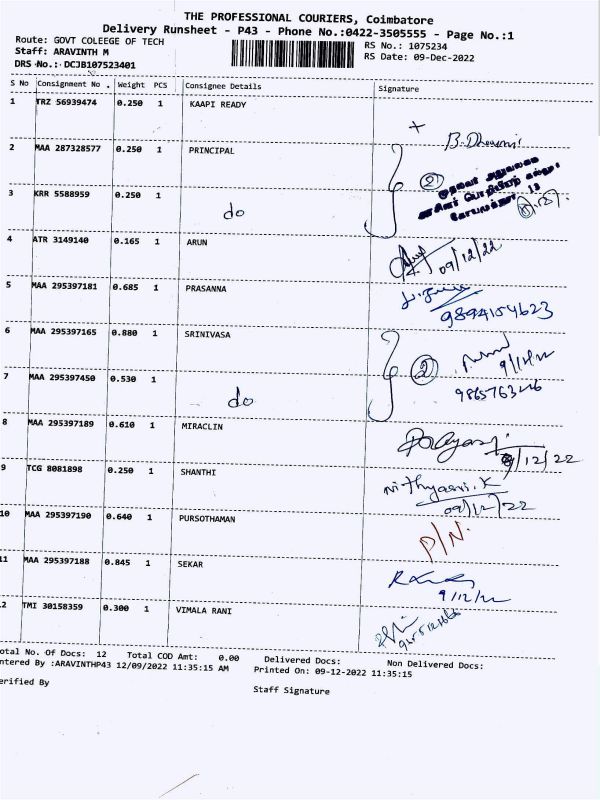 THE PROFESSIONAL COURIERS, Coimbatore
Delivery Runsheet - P43 - Phone No.:0422-3505555 - Page No.:1
Route: GOVT COLEEGE OF TECH
RS No.: 1075234
Staff: ARAVINTH M
RS Date: 09-Dec-2022
DRS No.: DCJB107523401
S No Consignment No . Weight PCS Consignee Details Signature
1 TRZ 56939474 0.250 1 KAAPI READY
B.
2 MAA 287328577 0.250 1 PRINCIPAL
2
3 KRR 5588959 0.250 1 do
4 ATR 3149140 0.165 1 ARUN
09/12/22
5 MAA 295397181 0.685 1 PRASANNA
9894154623
6 MAA 295397165 0.880 1 SRINIVASA
2
9/12/22
7 MAA 295397450 0.530 1 do
8 MAA 295397189 0.610 1 MIRACLIN
9/12/22
9 TCG 8081898 0.250 1 SHANTHI
Nithyasri.K
09/12/22
10 MAA 295397190 0.640 1 PURSOTHAMAN
P/N.
11 MAA 295397188 0.845 1 SEKAR
9/12/22
2 TMI 30158359 0.300 1 VIMALA RANI
otal No. Of Docs: 12 Total COD Amt: 0.00 Delivered Docs: Non Delivered Docs:
ntered By :ARAVINTHP43 12/09/2022 11:35:15 AM Printed On: 09-12-2022 11:35:15
erified By
Staff Signature